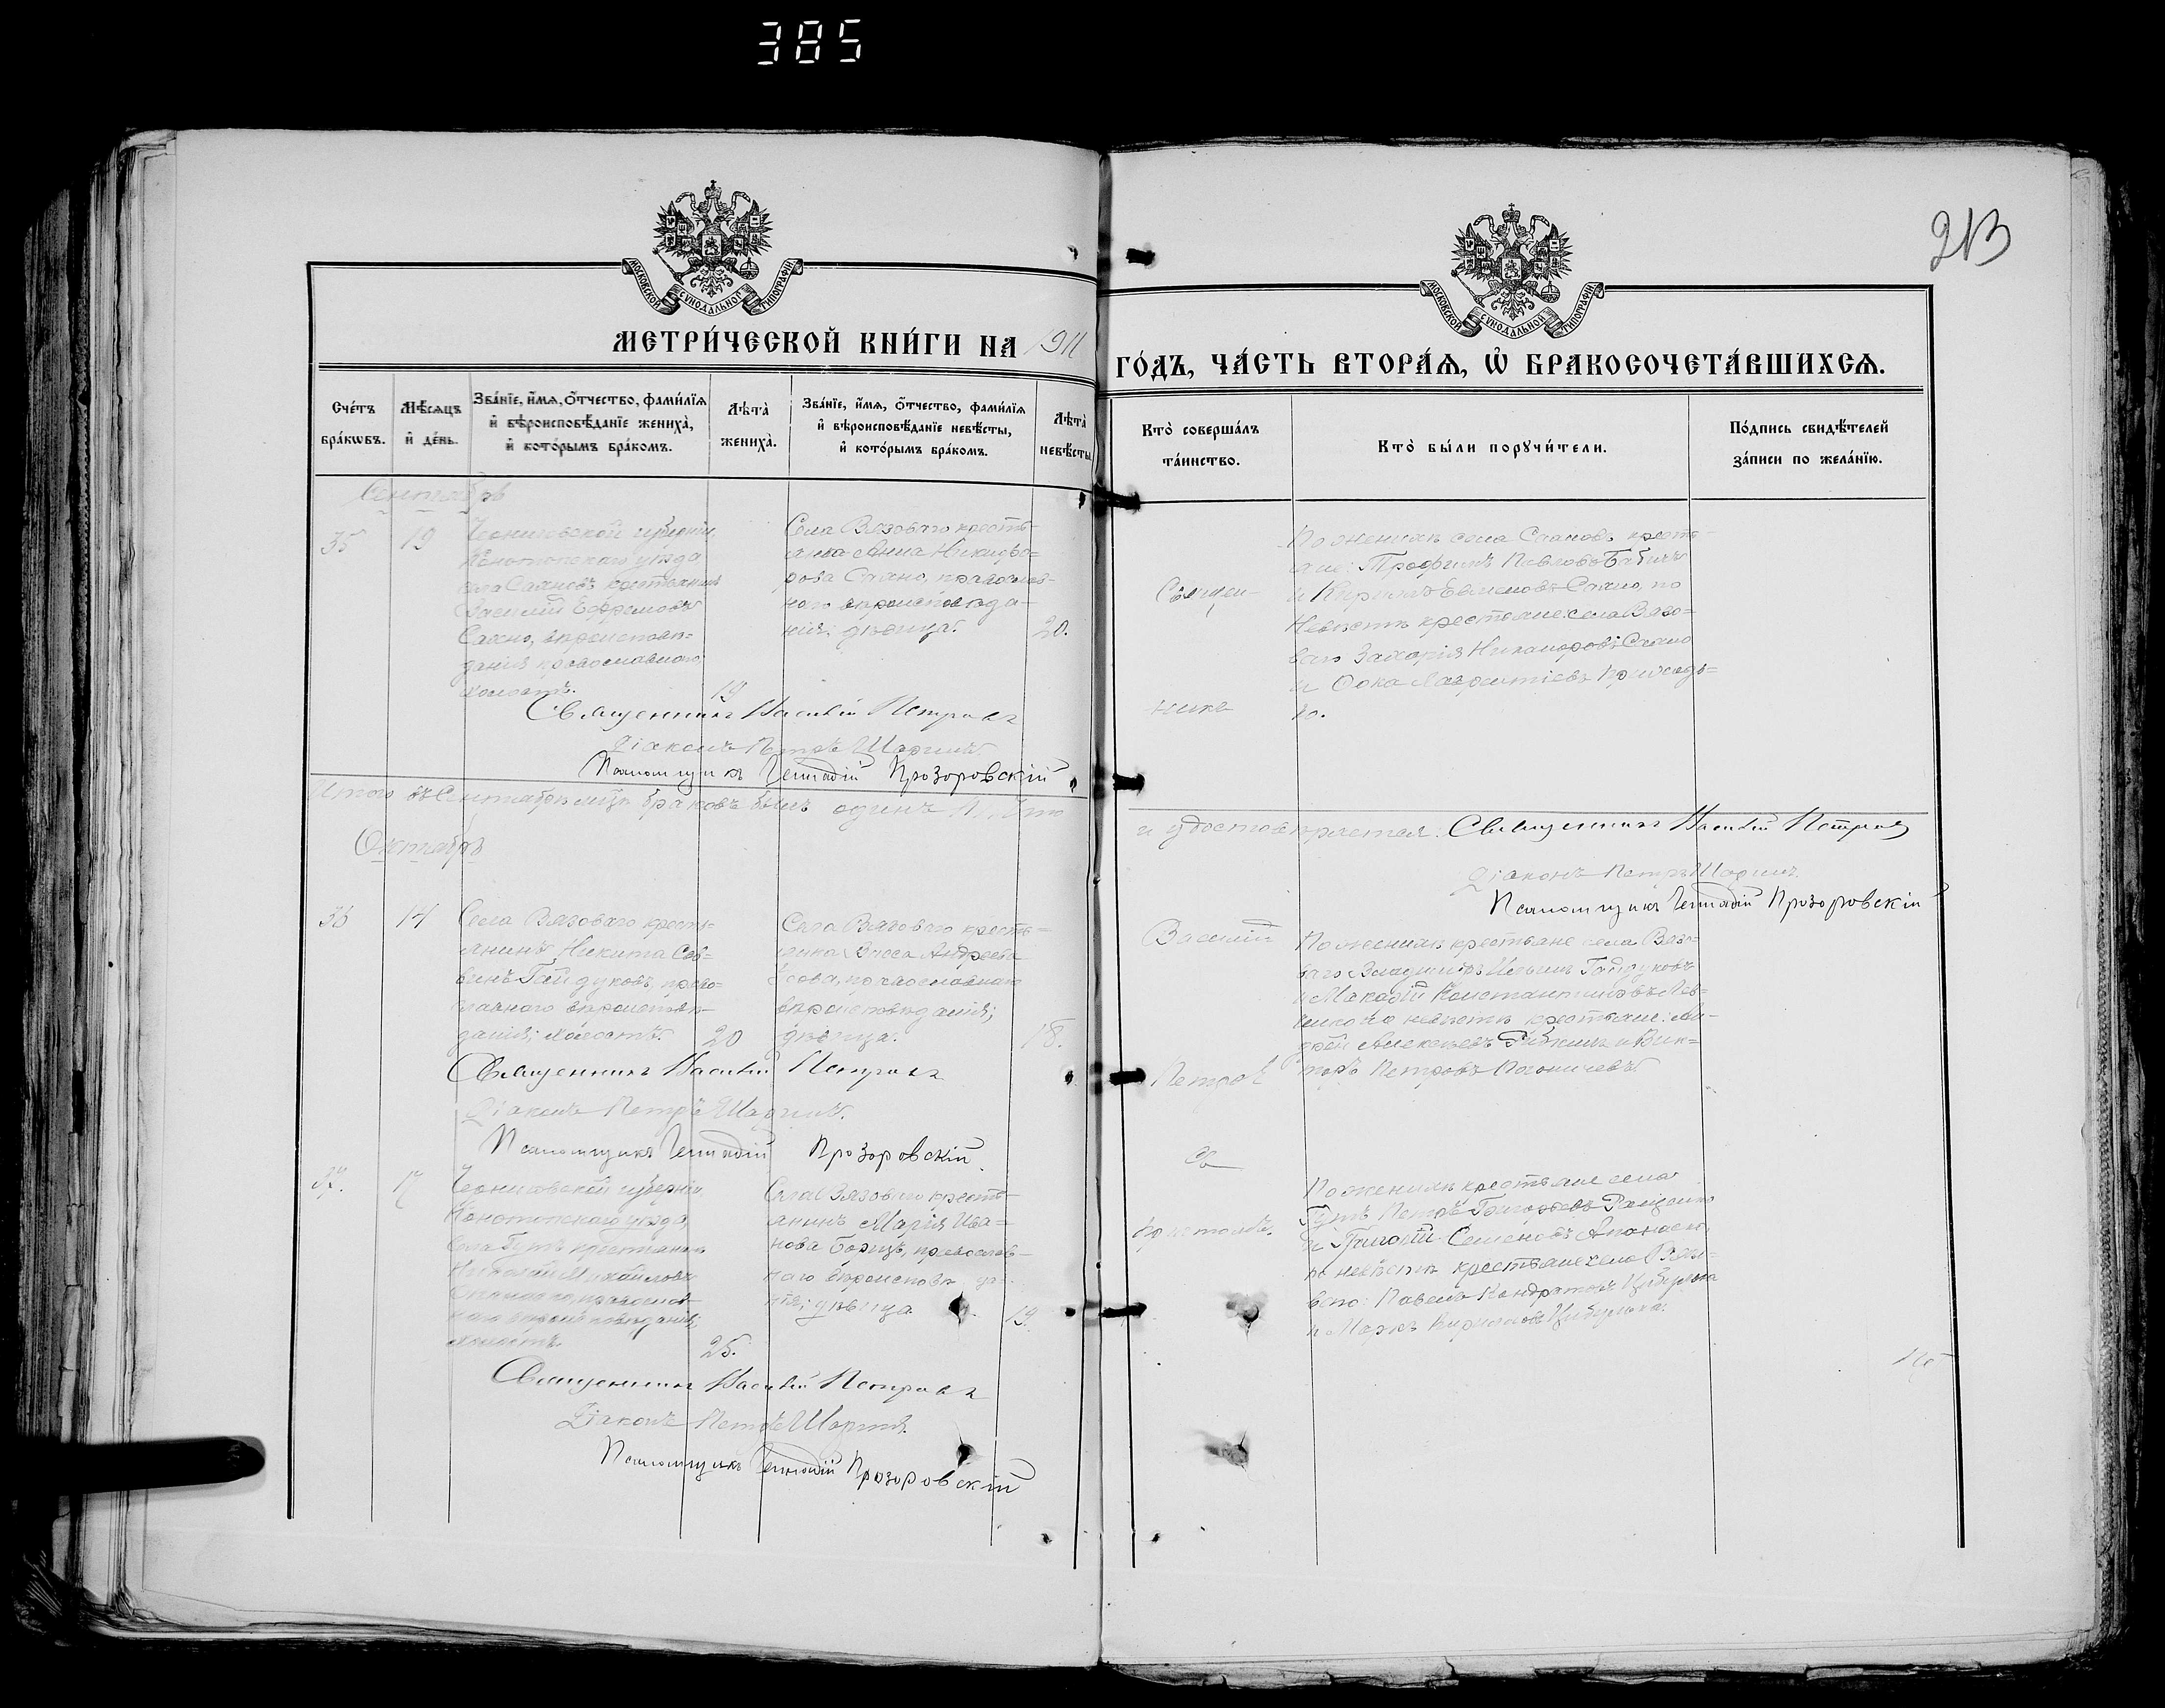 385
213
МОСКОВСКОЙ СѴНОДАЛЬНОЙ ТИПОГРАФІИ
МОСКОВСКОЙ СѴНОДАЛЬНОЙ ТИПОГРАФІИ
МЕТРИ́ЧЕСКОЙ КНИ́ГИ НА 1911
ГО́ДЪ, ЧА́СТЬ ВТОРА́Ѧ, Ѽ БРАКОСОЧЕТА́ВШИХСѦ.
Сче́тъ бра́кѡвъ.
Мѣ́сяцъ и҆ де́нь.
Зва́нїе, и҆́мя, ѻ҆́тчество, фами́лїя и҆ вѣроисповѣ́данїе жениха̀, и҆ кото́рымъ бра́комъ.
Лѣта̀ жениха̀.
Зва́нїе, и҆́мя, ѻ҆́тчество, фами́лїя и҆ вѣроисповѣ́данїе невѣ́сты, и҆ кото́рымъ бра́комъ.
Лѣта̀ невѣ́сты.
Кто̀ соверша́лъ та́инство.
Кто̀ бы́ли порꙋчи́тели.
По́дпись свидѣ́телей за́писи по жела́нїю.
Сентябрь
35
19
Черниговской губерніи,
Конотопскаго уѣзда
села крестьянинъ
Василій Ефремовъ
вѣроисповѣ-
данія православнаго,
холостъ.
19
Села Вязоваго кресть-
янка Анна Никифо-
рова православ-
наго вѣроисповѣда-
нія; дѣвица.
20.
Священ-
ника
По женихѣ села кресть-
яне: Трофимъ Павловъ Бабичъ
и по
невѣстѣ крестьяне села Вязо-
ваго Захарія
и Фока Лаврентіевъ
Священникъ Василій Петровъ
Діаконъ Петръ
Псаломщикъ Геннадій Прозоровскій
Итого въ Сентябрѣ мѣсяцѣ браковъ былъ одинъ
и удостовѣряется: Священникъ Василій Петровъ
Діаконъ Петръ
Псаломщикъ Геннадій Прозоровскій
Октябрь
36
14
Села Вязоваго кресть-
янинъ Никита Сав-
винъ Гайдуковъ, право-
славнаго вѣроисповѣ-
данія; холостъ.
20
Села Вязоваго кресть-
янка Андреева
православнаго
вѣроисповѣданія;
дѣвица.
18.
Василій
Петровъ
По женихѣ крестьяне села Вязо-
ваго Владиміръ Ильинъ Гайдуковъ
и Макарій Константиновъ
невѣстѣ крестьяне: Ан-
дрей Алексѣевъ и Вик-
торъ Петровъ
Священникъ Василій Петровъ
Діаконъ Петръ
Псаломщикъ Геннадій Прозоровскій
37.
17
Черниговской губерніи
Конотопскаго уѣзда,
села Гутъ крестьянинъ
Николай Михайловъ
православ-
наго вѣроисповѣданія;
холостъ.
25.
Села Вязоваго кресть-
янинъ Марія Ива-
нова православ-
наго вѣроисповѣда-
нія; дѣвица
19.
Съ
По женихѣ крестьяне села
Гутъ Петръ Григорьевъ
и Григорій Семеновъ
по невѣстѣ крестьяне села Вязо-
ваго: Павелъ Кондратовъ Цибулька
и Маркъ Кириловъ Цибулька.
Священникъ Василій Петровъ
Діаконъ Петръ
Псаломщикъ Геннадій Прозоровскій